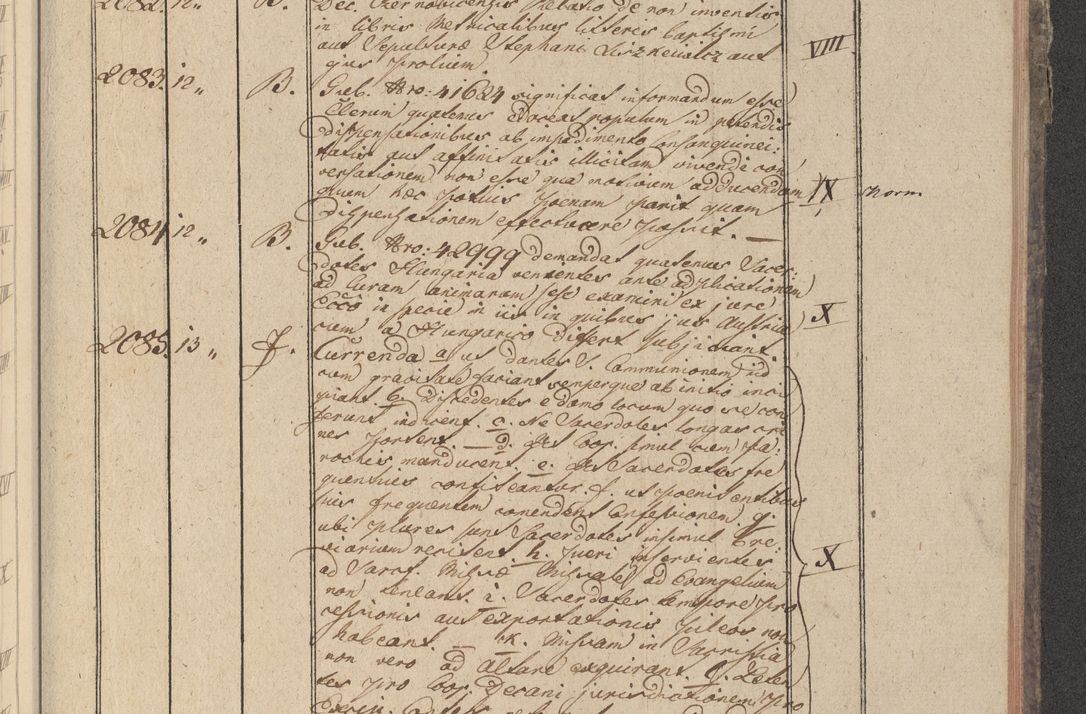 2082. 12 „ B. Dec. Czernovicensis Relatio de non inventis
in libris Metricalibus litteris baptismi
aut Sepulturæ Stephani aut VIII
ejus Prolium
2083. 12 „ B. Gub. Nro: 41624 significat informandum esse
Clerum quatenus edoceat populum in petendis
dispensationibus ab impedimento Consanguinei:
tatis aut affinitatis illicitam vivendi con
versationem non esse qua motivum adducendam IX Norm
quum hæc potius poenam parit quam
dispensationem efectuare possit. —
2084. 12 „ B. Gub. Nro: 42999 demandat quatenus Sacer:
dotes Hungaria venientes ante adplicationem
ad Curam animarum sese examini ex jure
Ecco in specie in iis in quibus jus Austria X
cum a Hungarico differt subjiciant.
2085. 13 „ J. Currenda a ut dantes S. Communionem id
cum gravitate faciant semperque ab initio inci
piant. b. Discedentes e domo locum quo se con
ferunt indicent. c. Ne Sacerdotes longas cri
nes portent. — d. Ut Coop. simul cum Pa:
rochis manducent. e. Ut Sacerdotes fre
quentius confiteantur. f. ut poenitentibus
his frequentem comendent Confessionem. g.
ubi plures sunt Sacerdotes insimul Bre:
viarium recitent. h. Pueri inservientes X
ad Sacrf. Missæ Missale ad Evangelium
non teneant. i. Sacerdotes tempore Pro
cessionis aut exportationis Pileos non
habeant. — k. Missam in Sacristia
non vero ad altare exquirant. l. Peten
tes pro Coop. Decani jurisdictionem pro